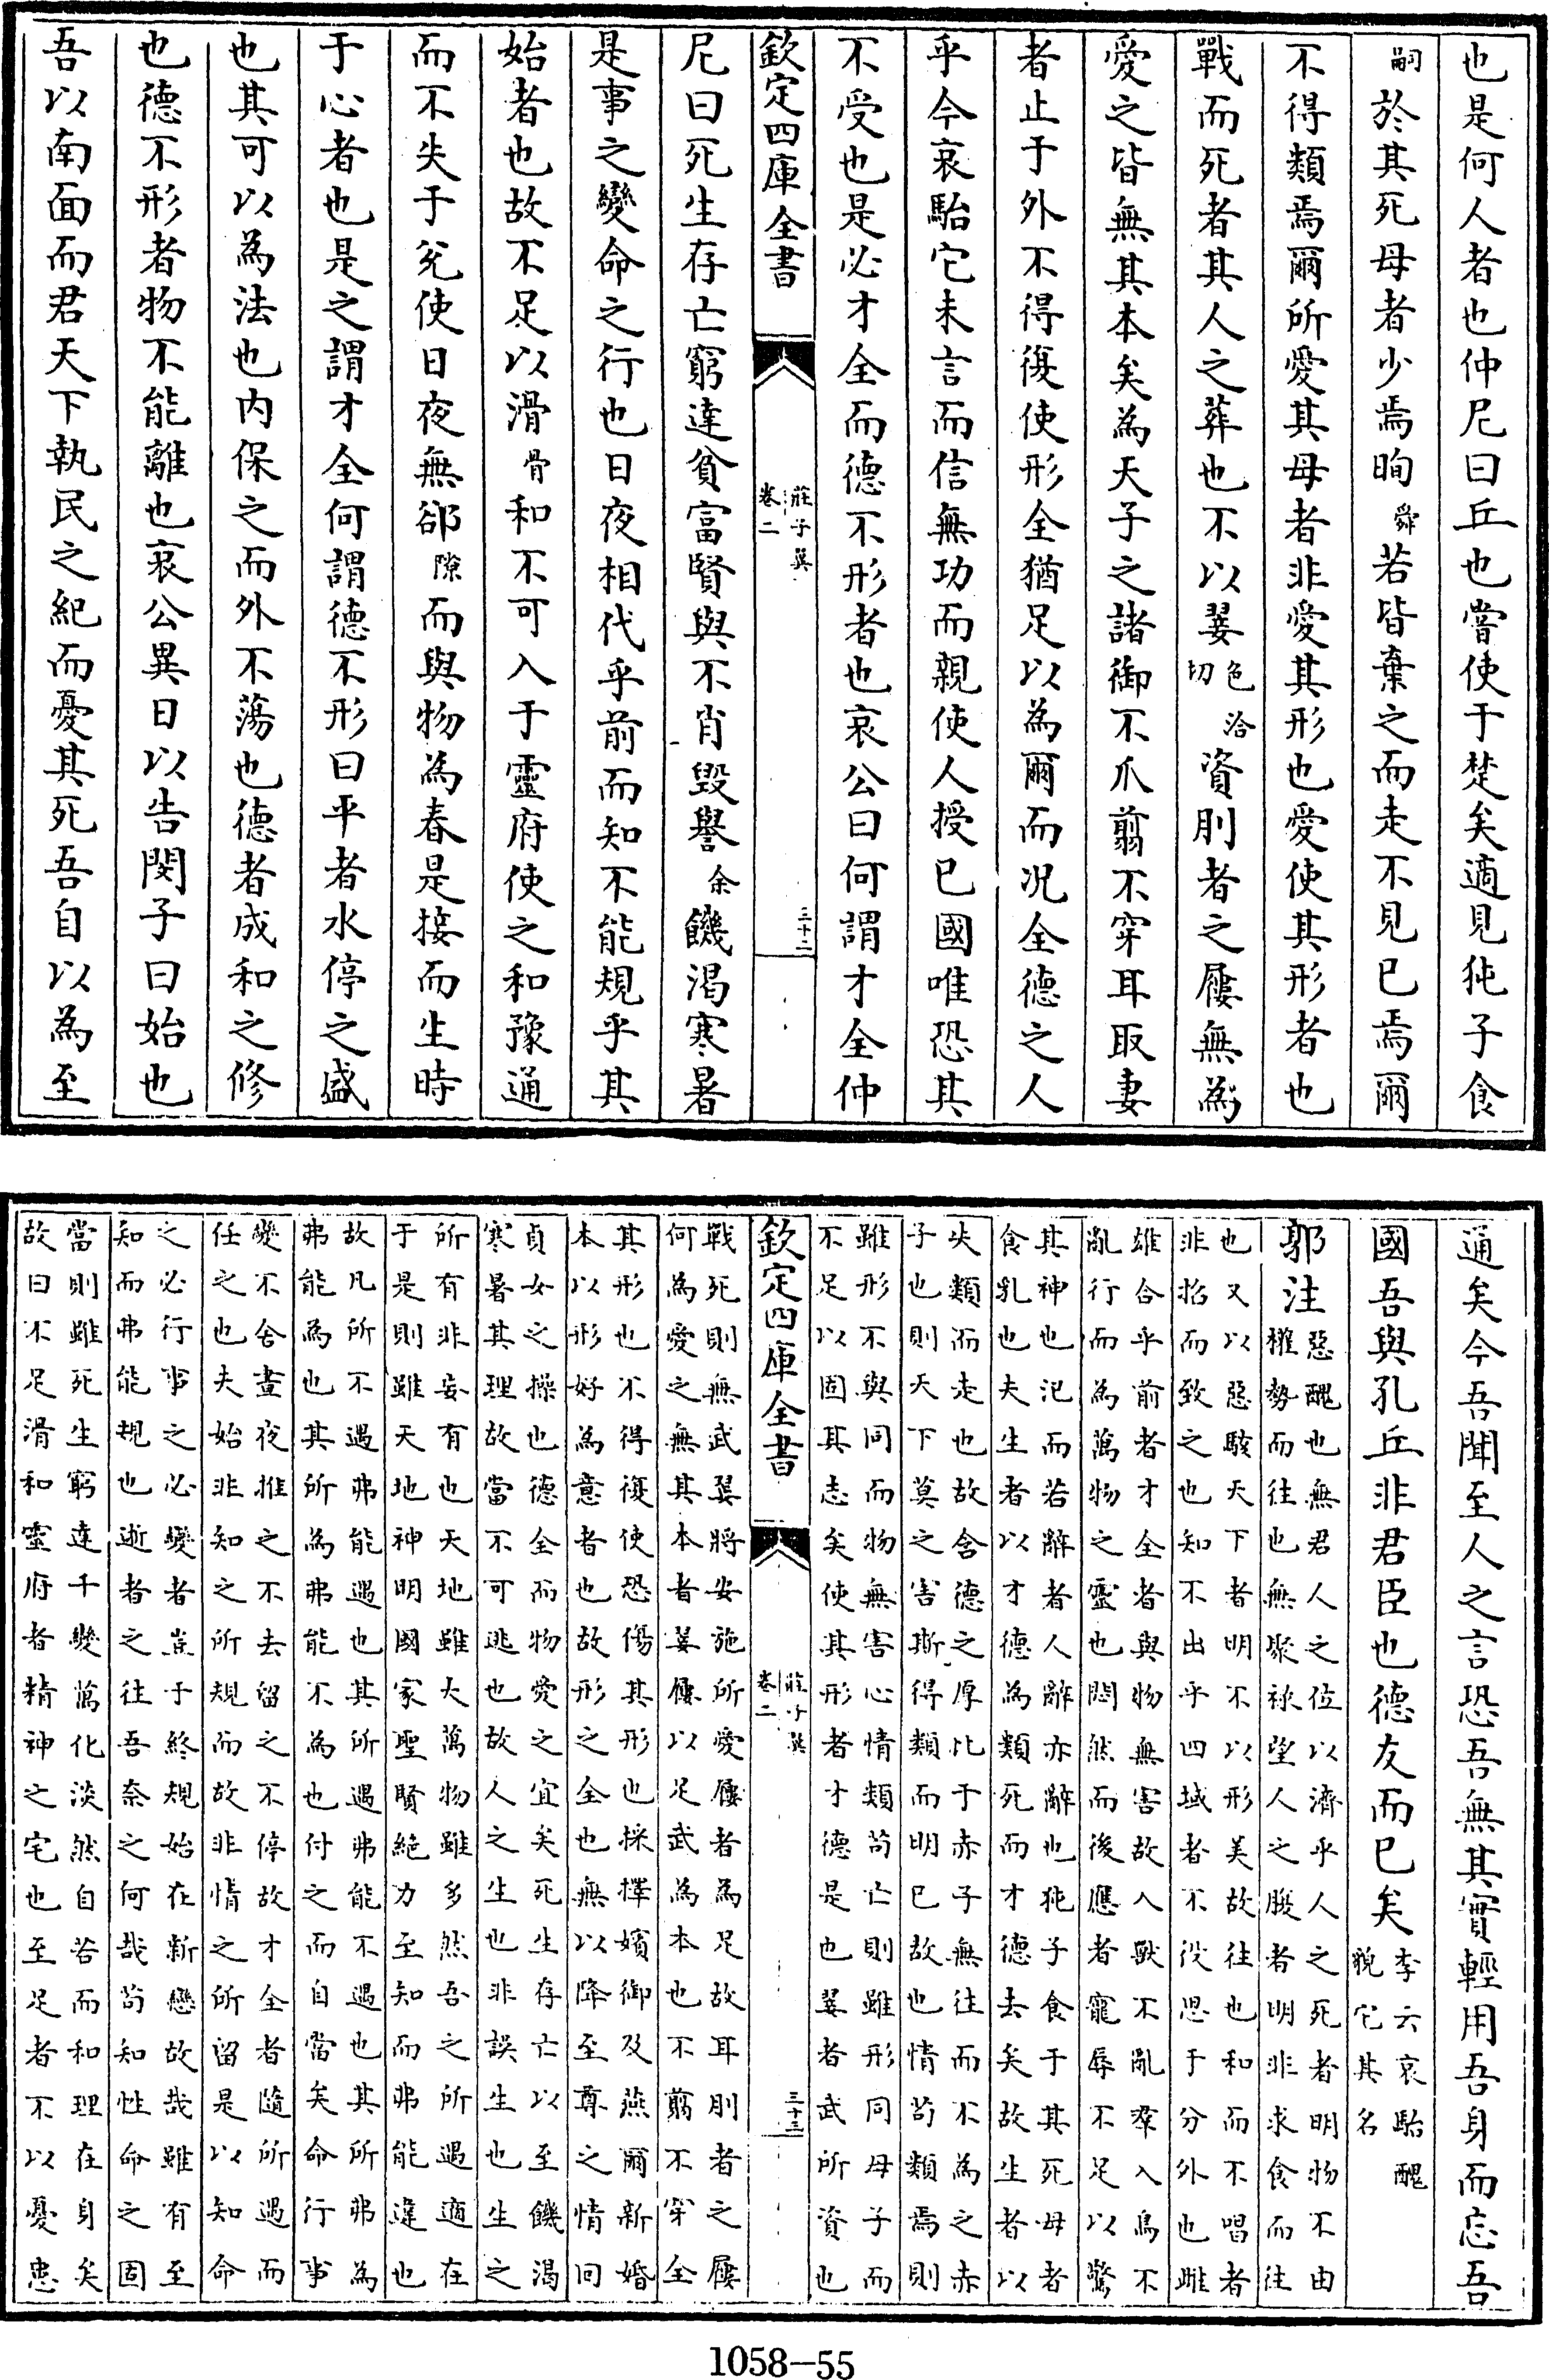 也是何人者也仲尼曰丘也嘗使于楚矣適見㹠子食
嗣於其死母者少焉眴舜若皆棄之而走不見已焉爾
不得類焉爾所愛其母者非愛其形也愛使其形者也
戰而死者其人之葬也不以翣色洽切資刖者之屨無為
愛之皆無其本矣為天子之諸御不爪翦不穿耳取妻
者止于外不得復使形全猶足以為爾而况全德之人
乎今哀駘它未言而信無功而親使人授已國唯恐其
不受也是必才全而德不形者也哀公曰何謂才全仲
欽定四庫全書
莊子翼
卷二
三十二
尼曰死生存亡窮達貧富賢與不肖毀譽余饑渴寒暑
是事之變命之行也日夜相代乎前而知不能規乎其
始者也故不足以滑骨和不可入于靈府使之和豫通
而不失于兊使日夜無郤隙而與物為春是接而生時
于心者也是之謂才全何謂德不形曰平者水停之盛
也其可以為法也内保之而外不蕩也德者成和之修
也德不形者物不能離也哀公異日以告閔子曰始也
吾以南面而君天下執民之紀而憂其死吾自以為至
通矣今吾聞至人之言恐吾無其實輕用吾身而忘吾
國吾與孔丘非君臣也德友而已矣李云哀駘醜
貌它其名
郭注惡醜也無君人之位以濟乎人之死者明物不由
權勢而往也無聚祿望人之腹者明非求食而往
也又以惡駭天下者明不以形美故往也和而不唱者
非招而致之也知不出乎四域者不役思于分外也雌
雄合乎前者才全者與物無害故入獸不亂羣入鳥不
亂行而為萬物之靈也悶然而後應者寵辱不足以驚
其神也氾而若辭者人辭亦辭也㹠子食于其死母者
食乳也夫生者以才德為類死而才德去矣故生者以
失類而走也故含德之厚比于赤子無往而不為之赤
子也則天下莫之害斯得類而明已故也情苟類焉則
雖形不與同而物無害心情類苟亡則雖形同母子而
不足以固其志矣使其形者才德是也翣者武所資也
欽定四庫全書
莊子翼
卷二
三十三
戰死則無武翣將安施所愛屨者為足故耳刖者之屨
何為愛之無其本者翣屨以足武為本也不翦不穿全
其形也不得復使恐傷其形也採擇嬪御及燕爾新婚
本以形好為意者也故形之全也無以降至尊之情回
貞女之操也德全而物愛之宜矣死生存亡以至饑渴
寒暑其理故當不可逃也故人之生也非誤生也生之
所有非妄有也天地雖大萬物雖多然吾之所遇適在
于是則雖天地神明國家聖賢絶力至知而弗能違也
故凡所不遇弗能遇也其所遇弗能不遇也其所弗為
弗能為也其所為弗能不為也付之而自當矣命行事
變不舍晝夜推之不去留之不停故才全者隨所遇而
任之也夫始非知之所規而故非情之所留是以知命
之必行事之必變者豈于終規始在新戀故哉雖有至
知而弗能規也逝者之往吾奈之何哉苟知性命之固
當則雖死生窮達千變萬化淡然自若而和理在身矣
故曰不足滑和靈府者精神之宅也至足者不以憂患
1058—55